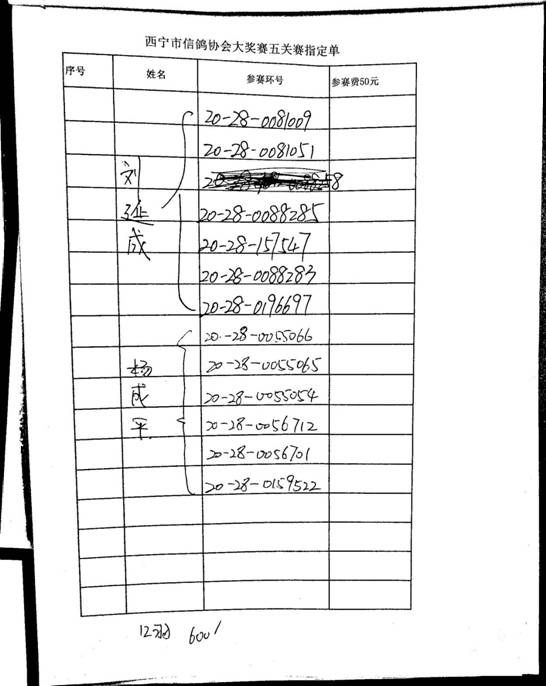 西宁市信鸽协会大奖赛五关赛指定单
序号 姓名 参赛环号 参赛费50元
20-28-0081009
20-28-0081051
刘
20-28-0088285
20-28-157547
成
20-28-0088283
20-28-0196697
20-28-0055066
杨 20-28-0055065
成 20-28-0055054
平 20-28-0056712
20-28-0056701
20-28-0159522
12羽 600/